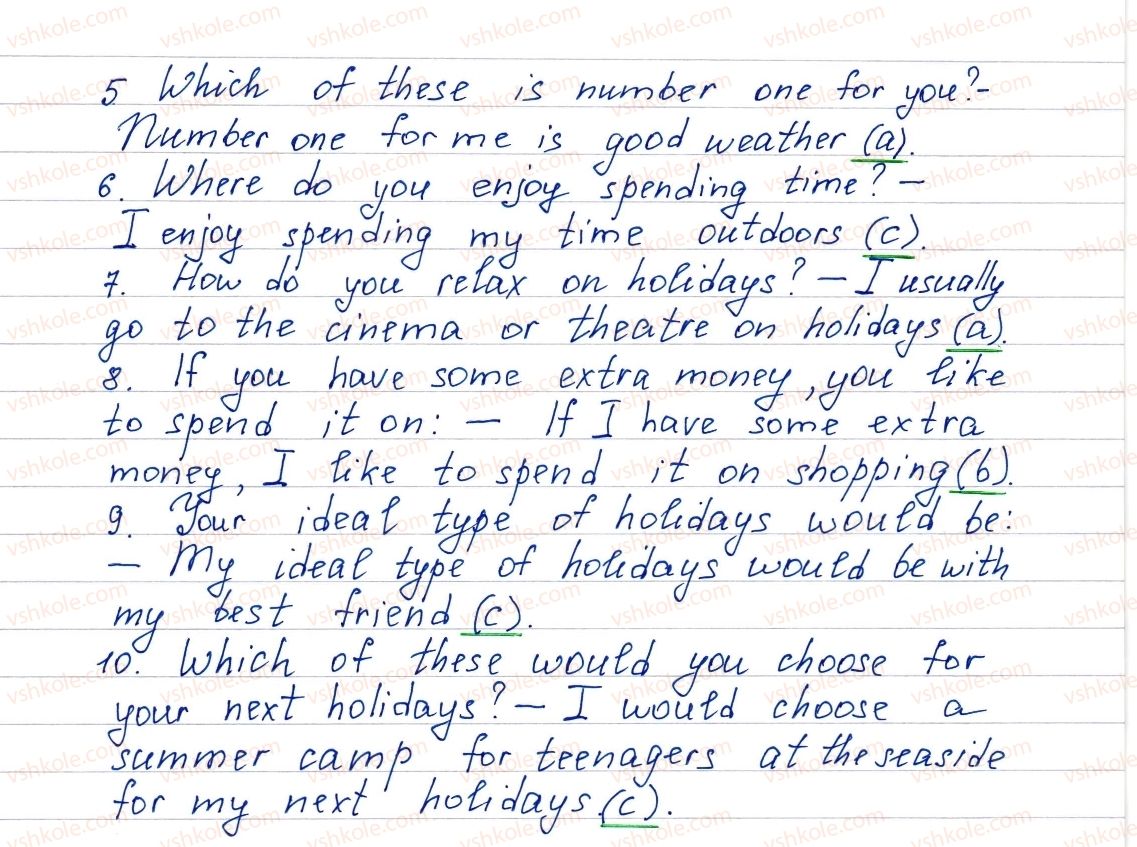 5 Which of these is number one for you?-
Number one for me is good weather (a).
6. Where do you enjoy spending time? —
I enjoy spending my time outdoors (c).
7. How do you relax on holidays? — I usually
go to the cinema or theatre on holidays (a).
8. If you have some extra money, you like
to spend it on: — If I have some extra
money, I like to spend it on shopping (b).
9. Your ideal type of holidays would be:
— My ideal type of holidays would be with
my best friend (c).
10. Which of these would you choose for
your next holidays? — I would choose a
summer camp for teenagers at the seaside
for my next holidays (c).
vshkole.com